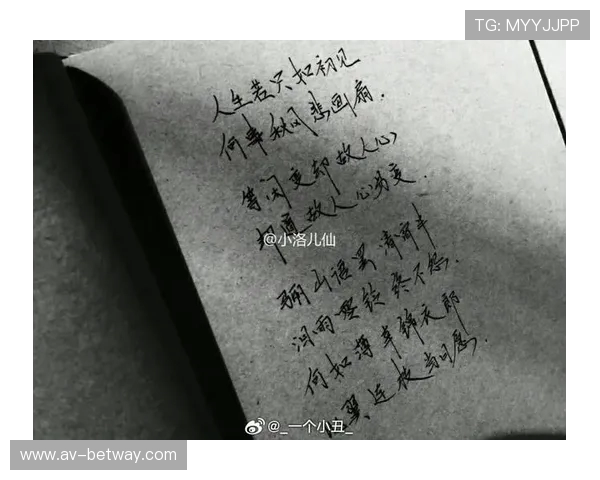 TG: MYYJJPP
人生若只如初见
何事秋风悲画扇.
等闲变却故人心
却道故人心易变.
@小洛儿仙
骊山语罢清宵半
泪雨铃终不怨.
何如薄幸锦衣郎
翼连枝当日愿.
@_一个小丑_
www.av-betway.com